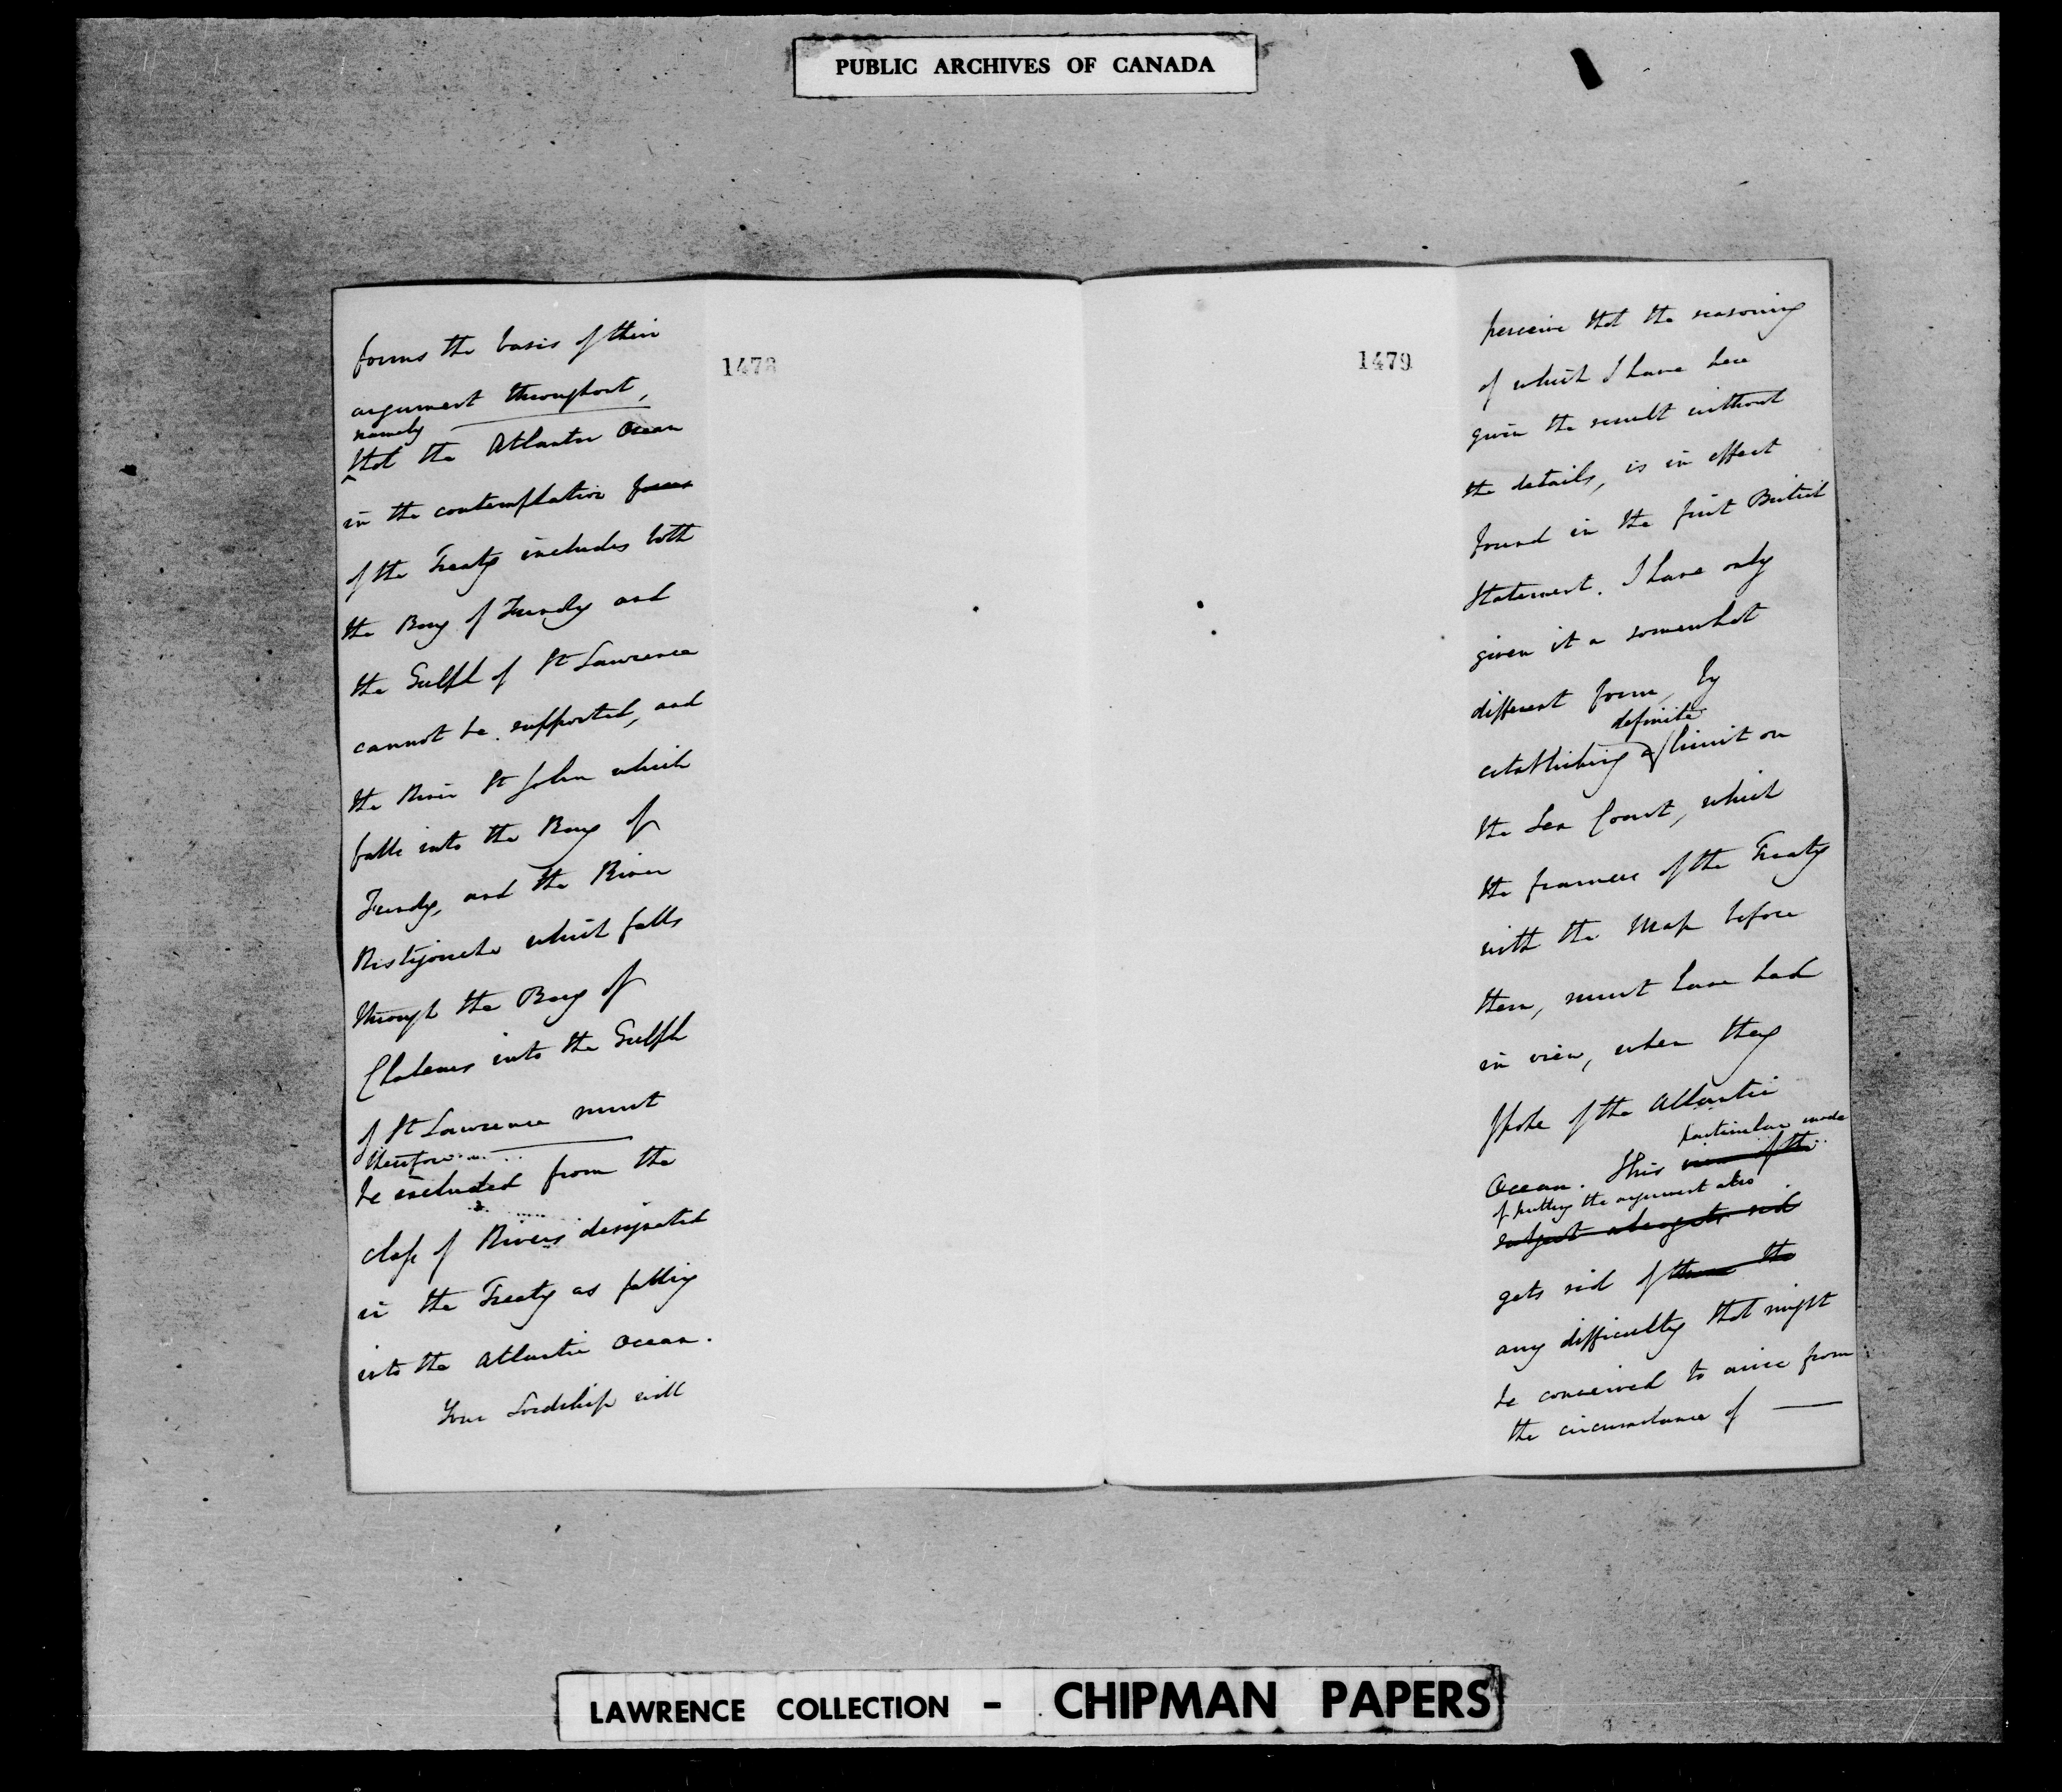 PUBLIC ARCHIVES OF CANADA
1478
forms the basis of their
argument throughout,
namely
that the Atlantic Ocean
in the contemplation
of the Treaty includes both
the Bay of Fundy and
the Gulph of St Lawrence
cannot be supported, and
the River St John which
falls into the Bay of
Fundy, and the River
Ristigouche which falls
through the Bay of
Chaleurs into the Gulph
of St Lawrence must
therefore
be excluded from the
class of Rivers designated
in the Treaty as falling
into the Atlantic Ocean.
Your Lordship will
1479
perceive that the reasoning
of which I have here
given the result without
the details, is in effect
found in the first British
Statement. I have only
given it a somewhat
different form, by
definite
establishing a limit on
the Sea Coast, which
the framers of the Treaty
with the Map before
them, must have had
in view, when they
spoke of the Atlantic
particular mode
Ocean. This view of the
of putting the argument also
subject also gets rid
gets rid of the
any difficulty that might
be conceived to arise from
the circumstance of —
LAWRENCE COLLECTION - CHIPMAN PAPERS